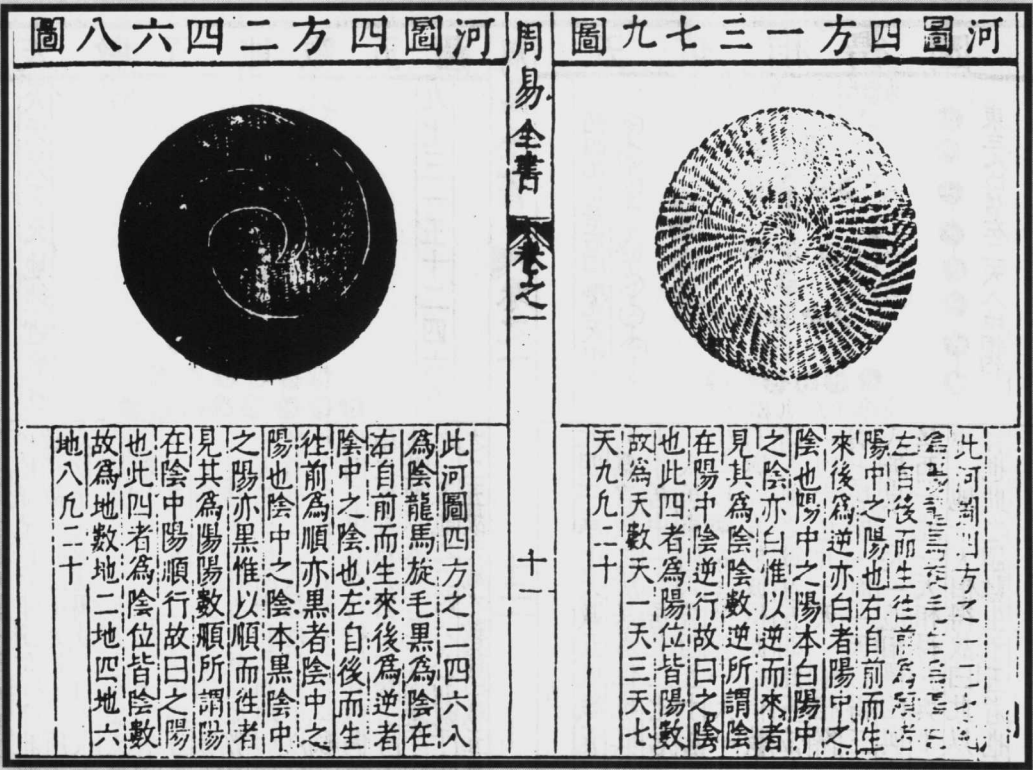 河圖四方一三七九圖
此河圖四方之一三七九
左自後而生往前爲順者
陽中之陽也右自前而生
來後爲逆亦白者陽中之
陰也陽中之陽本白陽中
之陰亦白惟以逆而來者
見其爲陰陰數逆所謂陰
在陽中陰逆行故曰之陰
也此四者爲陽位皆陽數
故爲天數天一天三天七
天九凡二十
周易全書
卷之一
十一
河圖四方二四六八圖
此河圖四方之二四六八
爲陰龍馬旋毛黑爲陰在
右自前而生來後爲逆者
陰中之陰也左自後而生
徃前爲順亦黑者陰中之
陽也陰中之陰本黑陰中
之陽亦黑惟以順而徃者
見其爲陽陽數順所謂陽
在陰中陽順行故曰之陽
也此四者爲陰位皆陰數
故爲地數地二地四地六
地八凡二十